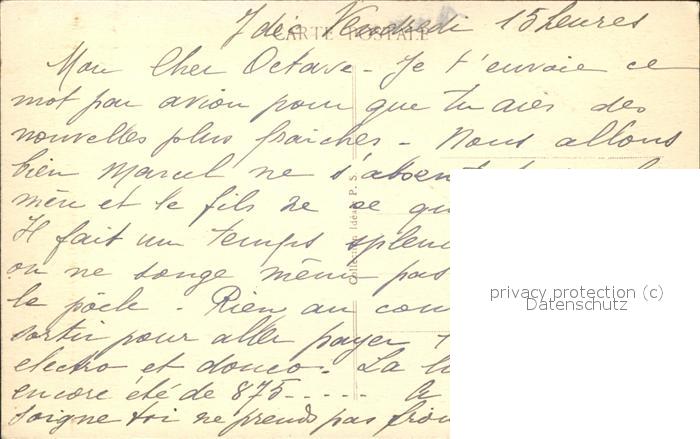 7 déc Vendredi 15 heures
CARTE POSTALE
Mon Cher Octave - Je t'envoie ce
mot par avion pour que tu aies des
nouvelles plus fraiches - Nous allons
bien Marcel ne s'absent
mère et le fils ne se qu
Il fait un temps splen
on ne songe même pas
le pôele - Rien au con
sortir pour aller payer
electro et - La
encore été de 875 - - - - -
soigne toi ne prends pas froi
Collection Idéale P. S.
privacy protection (c)
Datenschutz